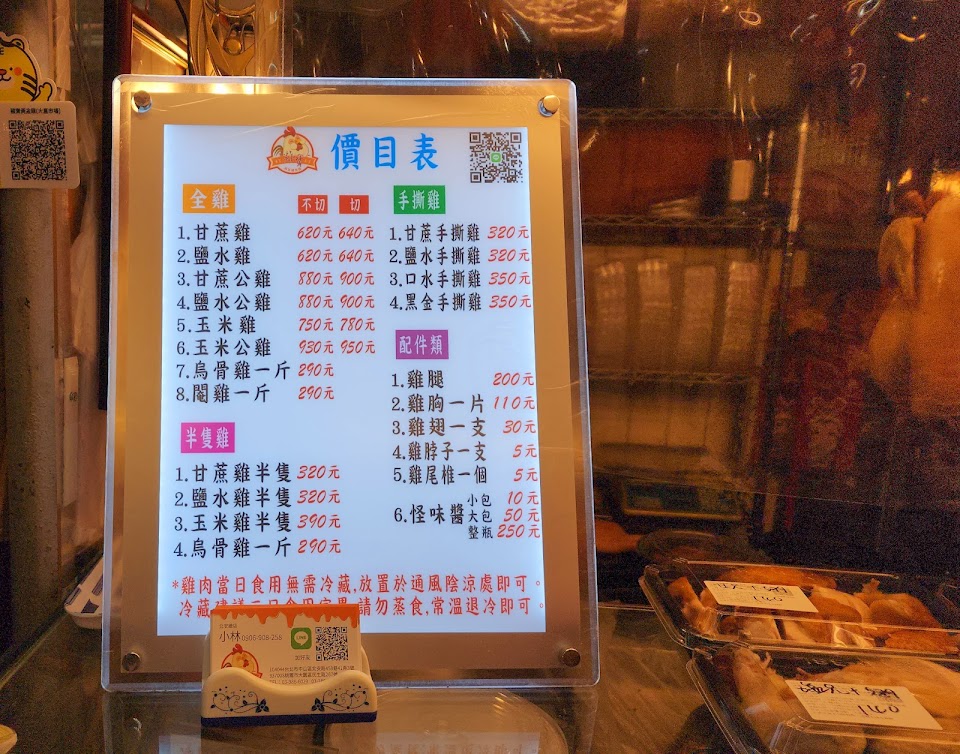 價目表
全雞 不切 切
1.甘蔗雞 620元 640元
2.鹽水雞 620元 640元
3.甘蔗公雞 880元 900元
4.鹽水公雞 880元 900元
5.玉米雞 750元 780元
6.玉米公雞 930元 950元
7.烏骨雞一斤 290元
8.閹雞一斤 290元
半隻雞
1.甘蔗雞半隻 320元
2.鹽水雞半隻 320元
3.玉米雞半隻 390元
4.烏骨雞一斤 290元
手撕雞
1.甘蔗手撕雞 320元
2.鹽水手撕雞 320元
3.口水手撕雞 350元
4.黑金手撕雞 350元
配件類
1.雞腿 200元
2.雞胸一片 110元
3.雞翅一支 30元
4.雞脖子一支 5元
5.雞尾椎一個 5元
小包 10元
6.怪味醬 大包 50元
整瓶 250元
*雞肉當日食用無需冷藏,放置於通風陰涼處即可。
冷藏 請勿蒸食,常溫退冷即可。
小林
LINE